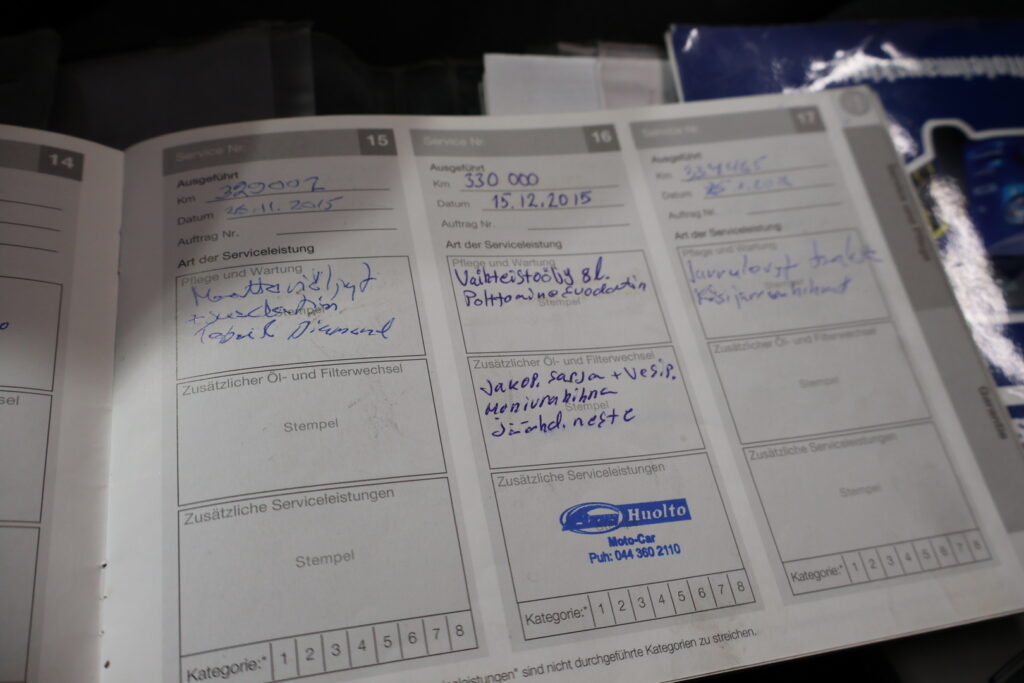 14
Service Nr. 15
Ausgeführt
Km 320007
Datum 26.11.2015
Auftrag Nr.
Art der Serviceleistung
Pflege und Wartung
Stempel
Diamond
Zusätzlicher Öl- und Filterwechsel
Stempel
Zusätzliche Serviceleistungen
Stempel
Kategorie:* 1 2 3 4 5 6 7 8
Service Nr. 16
Ausgeführt
Km 330 000
Datum 15.12.2015
Auftrag Nr.
Art der Serviceleistung
Pflege und Wartung
Vaihteistoöljy 8l.
Polttoaine
Stempel
Zusätzlicher Öl- und Filterwechsel
Jakop. sarja + Vesip.
Moniurahihna
Stempel
Jäähd. neste
Zusätzliche Serviceleistungen
Huolto
Moto-Car
Puh: 044 360 2110
Kategorie:* 1 2 3 4 5 6 7 8
Service Nr. 17
Ausgeführt
Km
Datum
Auftrag Nr.
Art der Serviceleistung
Pflege und Wartung
Stempel
Zusätzlicher Öl- und Filterwechsel
Stempel
Zusätzliche Serviceleistungen
Stempel
Kategorie:* 1 2 3 4 5 6 7 8
sind nicht durchgeführte Kategorien zu streichen.